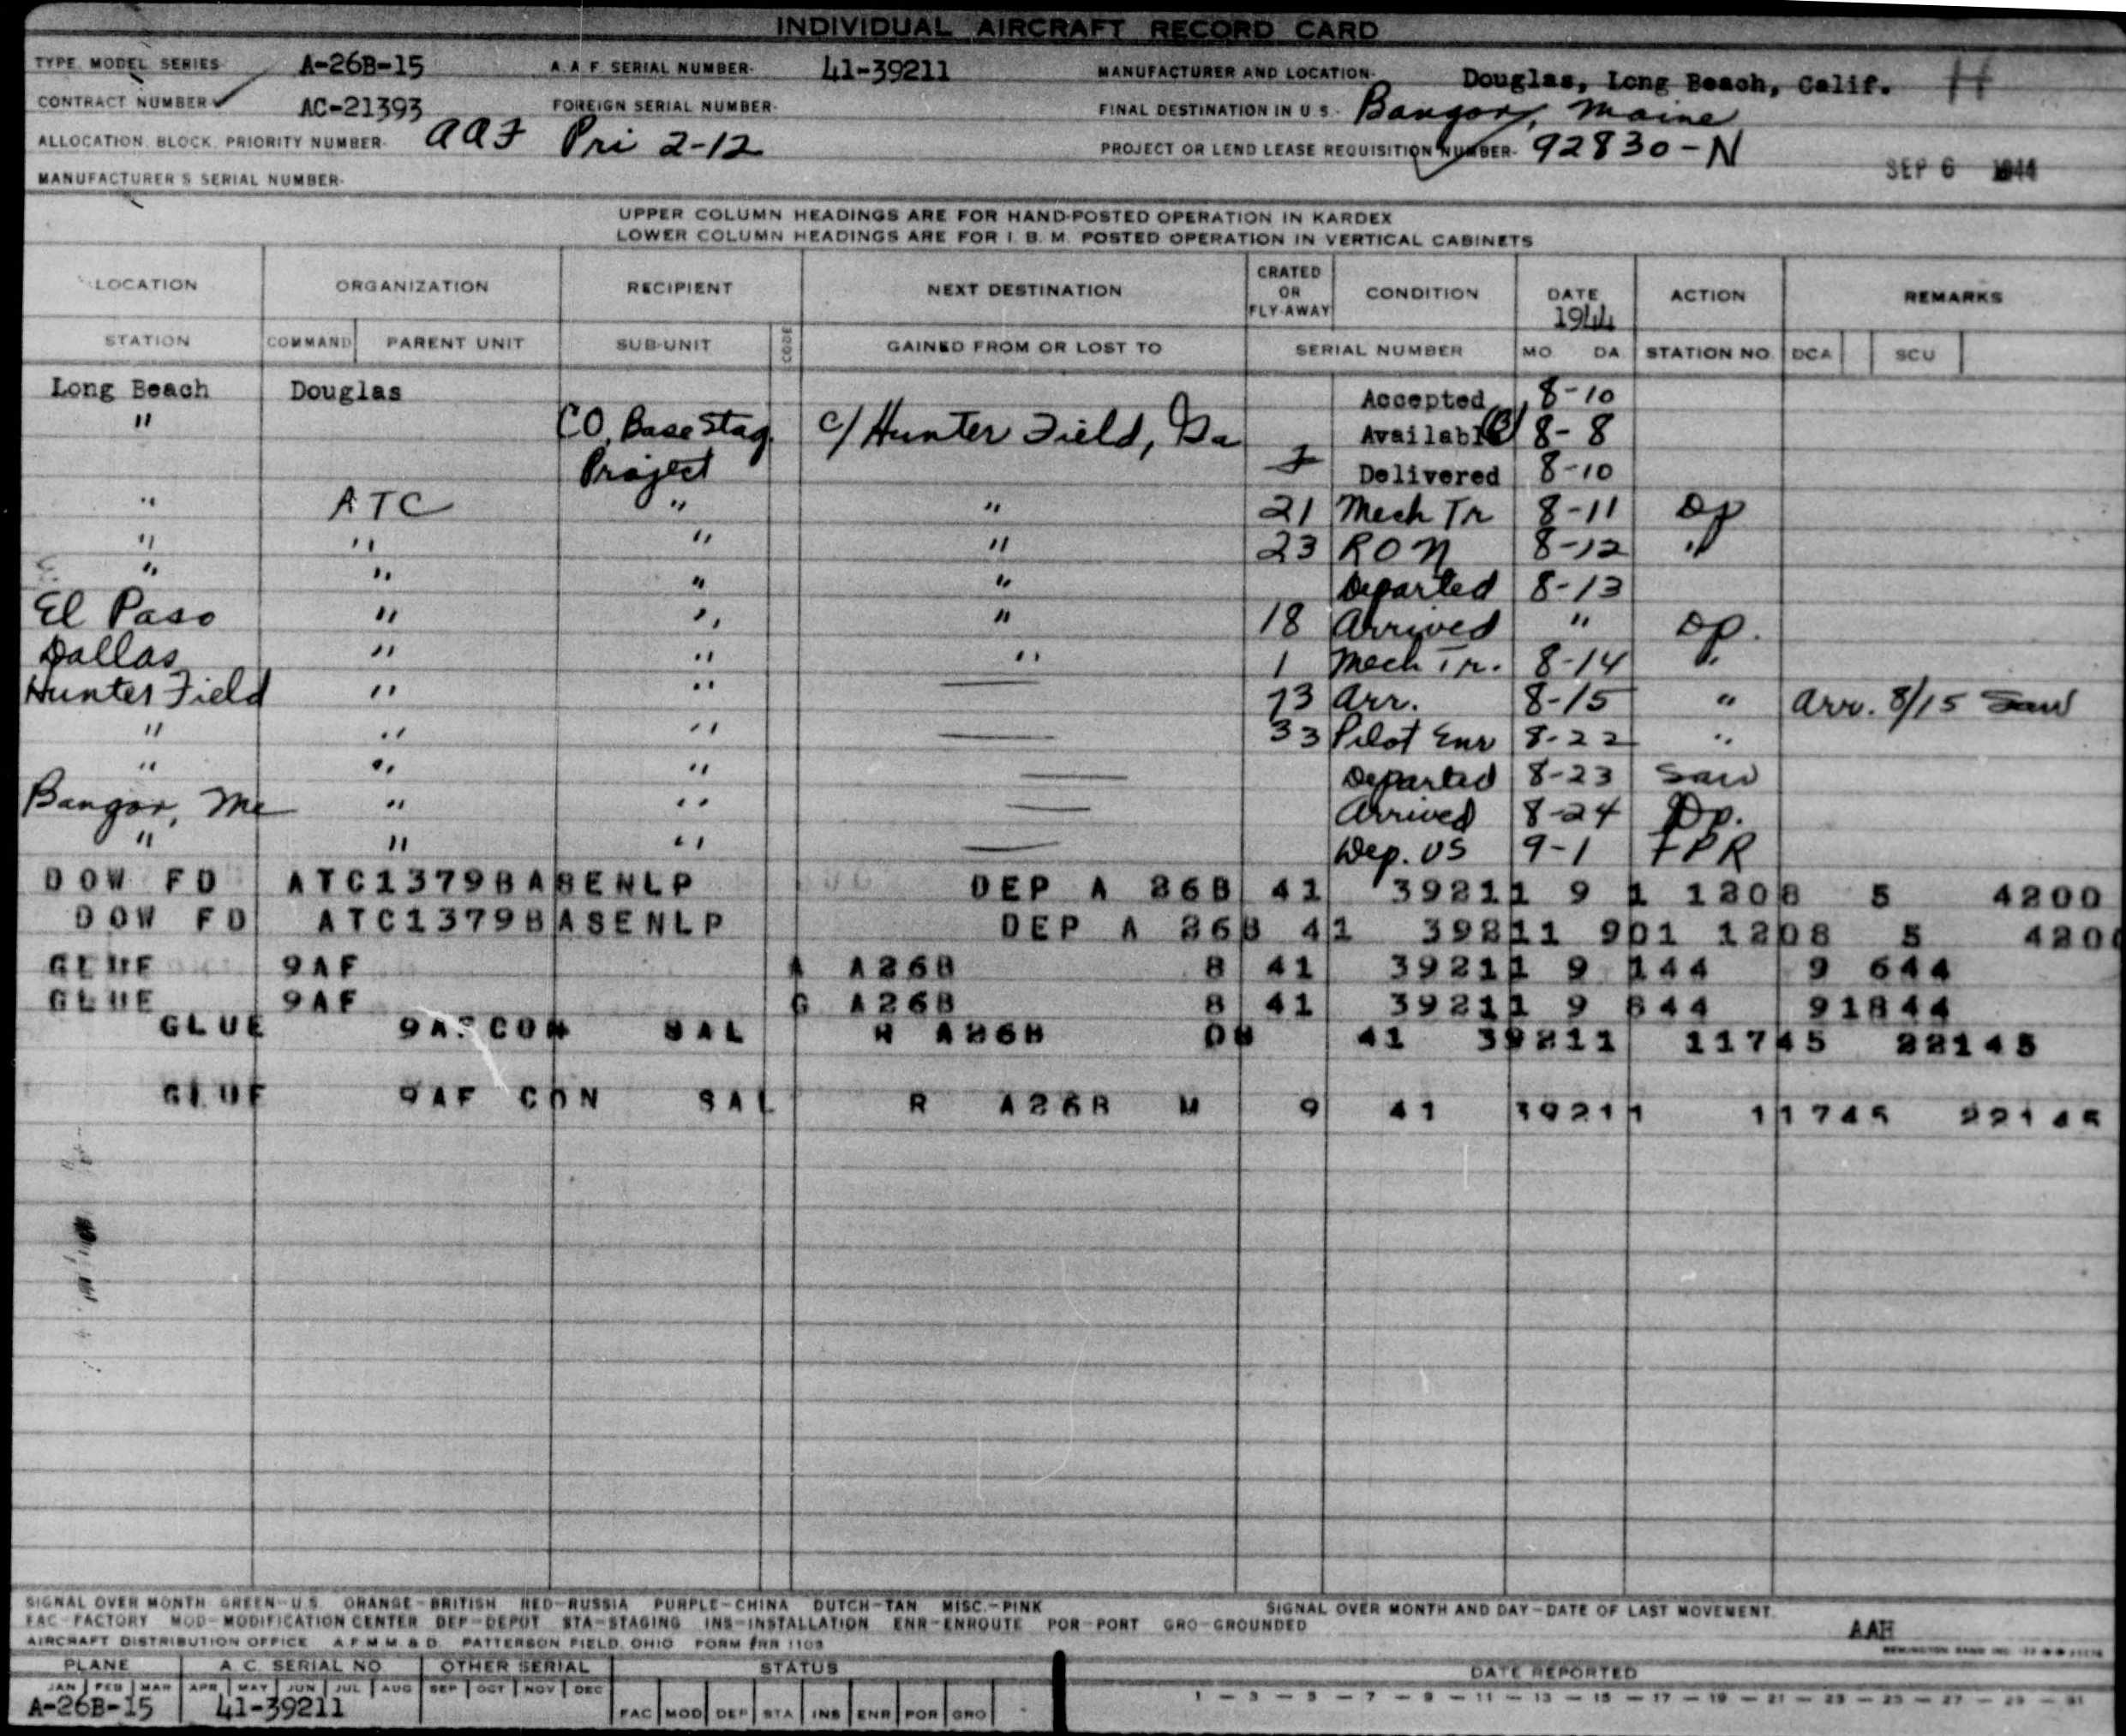 INDIVIDUAL AIRCRAFT RECORD CARD
TYPE MODEL SERIES- A-26B-15 A.A.F. SERIAL NUMBER- 41-39211 MANUFACTURER AND LOCATION- Douglas, Long Beach, Calif. H
CONTRACT NUMBER AC-21393 FOREIGN SERIAL NUMBER- FINAL DESTINATION IN U.S.- Bangor, Maine
ALLOCATION BLOCK PRIORITY NUMBER- AAF Pri 2-12 PROJECT OR LEND LEASE REQUISITION NUMBER- 92830-N
MANUFACTURER'S SERIAL NUMBER- SEP 6 1944
UPPER COLUMN HEADINGS ARE FOR HAND-POSTED OPERATION IN KARDEX
LOWER COLUMN HEADINGS ARE FOR I. B. M. POSTED OPERATION IN VERTICAL CABINETS
LOCATION ORGANIZATION RECIPIENT NEXT DESTINATION CRATED OR FLY-AWAY CONDITION DATE 1944 ACTION REMARKS
STATION COMMAND PARENT UNIT SUB-UNIT CODE GAINED FROM OR LOST TO SERIAL NUMBER MO. DA. STATION NO. DCA SCU
Long Beach Douglas Accepted 8-10
" CO, Base Stag. c/ Hunter Field, Ga Available 8-8
Project Delivered 8-10
" ATC " " 21 Mech Tr 8-11 Dp
" " " " 23 RON 8-12 "
" " " " Departed 8-13
El Paso " " " 18 Arrived " Dp.
Dallas " " " 1 Mech Tr. 8-14 "
Hunter Field " " — 73 Arr. 8-15 " Arr. 8/15 Saw
" " " — 33 Pilot Enr 8-22 "
" " " — Departed 8-23 Saw
Bangor, Me " " — Arrived 8-24 Dp.
" " " — Dep. US 9-1 FPR
DOW FD ATC1379BASENLP DEP A 26B 41 39211 9 1 1208 5 4200
DOW FD ATC1379BASENLP DEP A 26B 41 39211 901 1208 5 420
GLUE 9AF A A26B B 41 39211 9 144 9 644
GLUE 9AF G A26B B 41 39211 9 844 91844
GLUE 9AF CON SAL A26B 41 39211 11745 22145
GLUE 9AF CON SAL R A26B M 9 41 39211 11745 22145
SIGNAL OVER MONTH GREEN-U.S. ORANGE-BRITISH RED-RUSSIA PURPLE-CHINA DUTCH-TAN MISC.-PINK SIGNAL OVER MONTH AND DAY-DATE OF LAST MOVEMENT.
FAC-FACTORY MOD-MODIFICATION CENTER DEP-DEPOT STA-STAGING INS-INSTALLATION ENR-ENROUTE POR-PORT GRO-GROUNDED
AIRCRAFT DISTRIBUTION OFFICE A.F.M.M. & D. PATTERSON FIELD, OHIO FORM #RR 1103 AAH
PLANE A.C. SERIAL NO. OTHER SERIAL STATUS DATE REPORTED
JAN FEB MAR APR MAY JUN JUL AUG SEP OCT NOV DEC
A-26B-15 41-39211 FAC MOD DEP STA INS ENR POR GRO 1-3-5-7-9-11-13-15-17-19-21-23-25-27-29-31